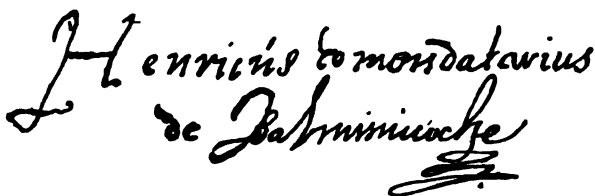 Henricus comondatarius
de Balmirinoche